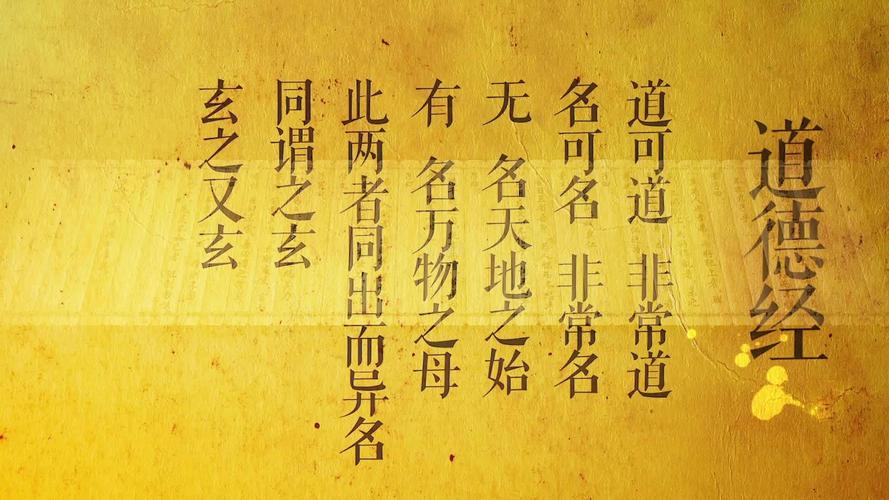 道德经
道可道 非常道
名可名 非常名
无 名天地之始
有 名万物之母
此两者同出而异名
同谓之玄
玄之又玄